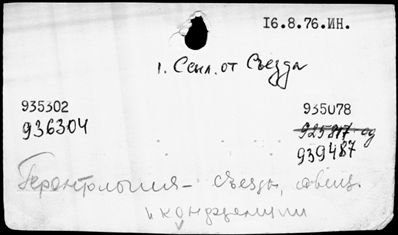 16.8.76.ИН.
1. Ссыл. от Съезда
935302
935078
936304
925817 од
939487
Геронтология – съезды, совещ.
и конференции